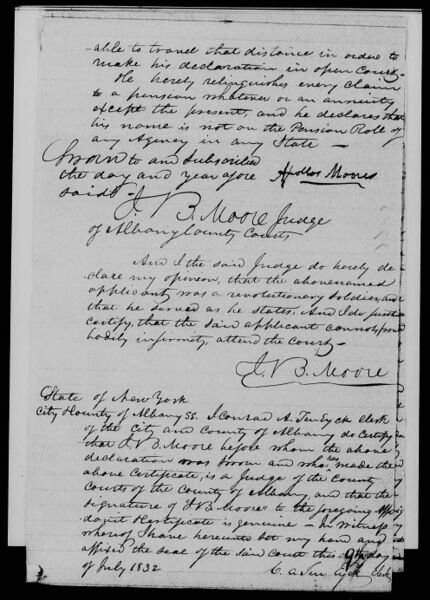 able to travel that distance in order to
make his declaration in open Court -
He hereby relinquishes every claim
to a pension whatever or an annuity
except the present, and he declares that
his name is not on the Pension Roll of
any Agency in any State -
Sworn to and Subscribed
the day and year afore Apollos Moore
said -
J. V. B. Moore Judge
of Albany County Courts
And I the said Judge do hereby de-
clare my opinion, that the abovenamed
applicant was a revolutionary soldier and
that he served as he states. And I do further
certify, that the said applicant cannot from
bodily infirmity, attend the Court -
J. V. B. Moore
State of New York
City & County of Albany SS. I Conrad A. Ten Eyck Clerk
of the City and County of Albany do Certify
that J. V. B. Moore before whom the above
declaration was sworn and who has made the
above Certificate, is a Judge of the County
Courts of the County of Albany, and that the
signature of "J. V. B. Moore" to the foregoing affi
davit & Certificate is genuine - In Witness
whereof I have hereunto set my hand and
affixed the seal of the said Court this 9th day
of July 1832
C. A. Ten Eyck Clerk